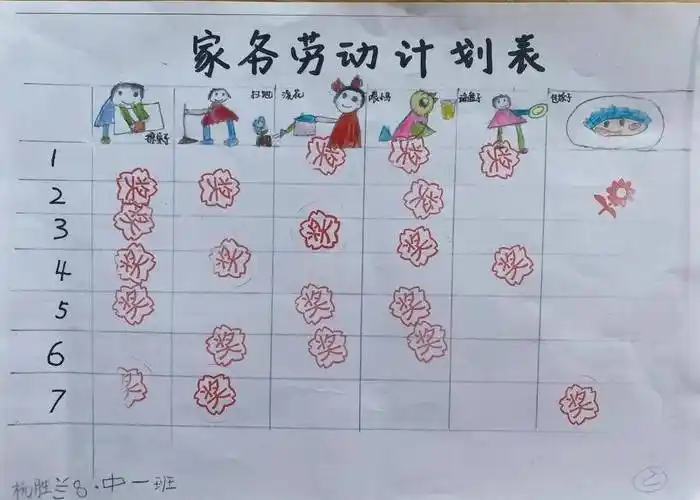 家务劳动计划表
擦桌子 扫地 浇花 喂小鸟 端盘子 包饺子
1 奖 奖 奖
2 奖 奖 奖
3 奖 奖 奖
4 奖 奖 奖
5 奖 奖 奖
6 奖 奖 奖
7 奖 奖 奖
杭胜兰.中一班